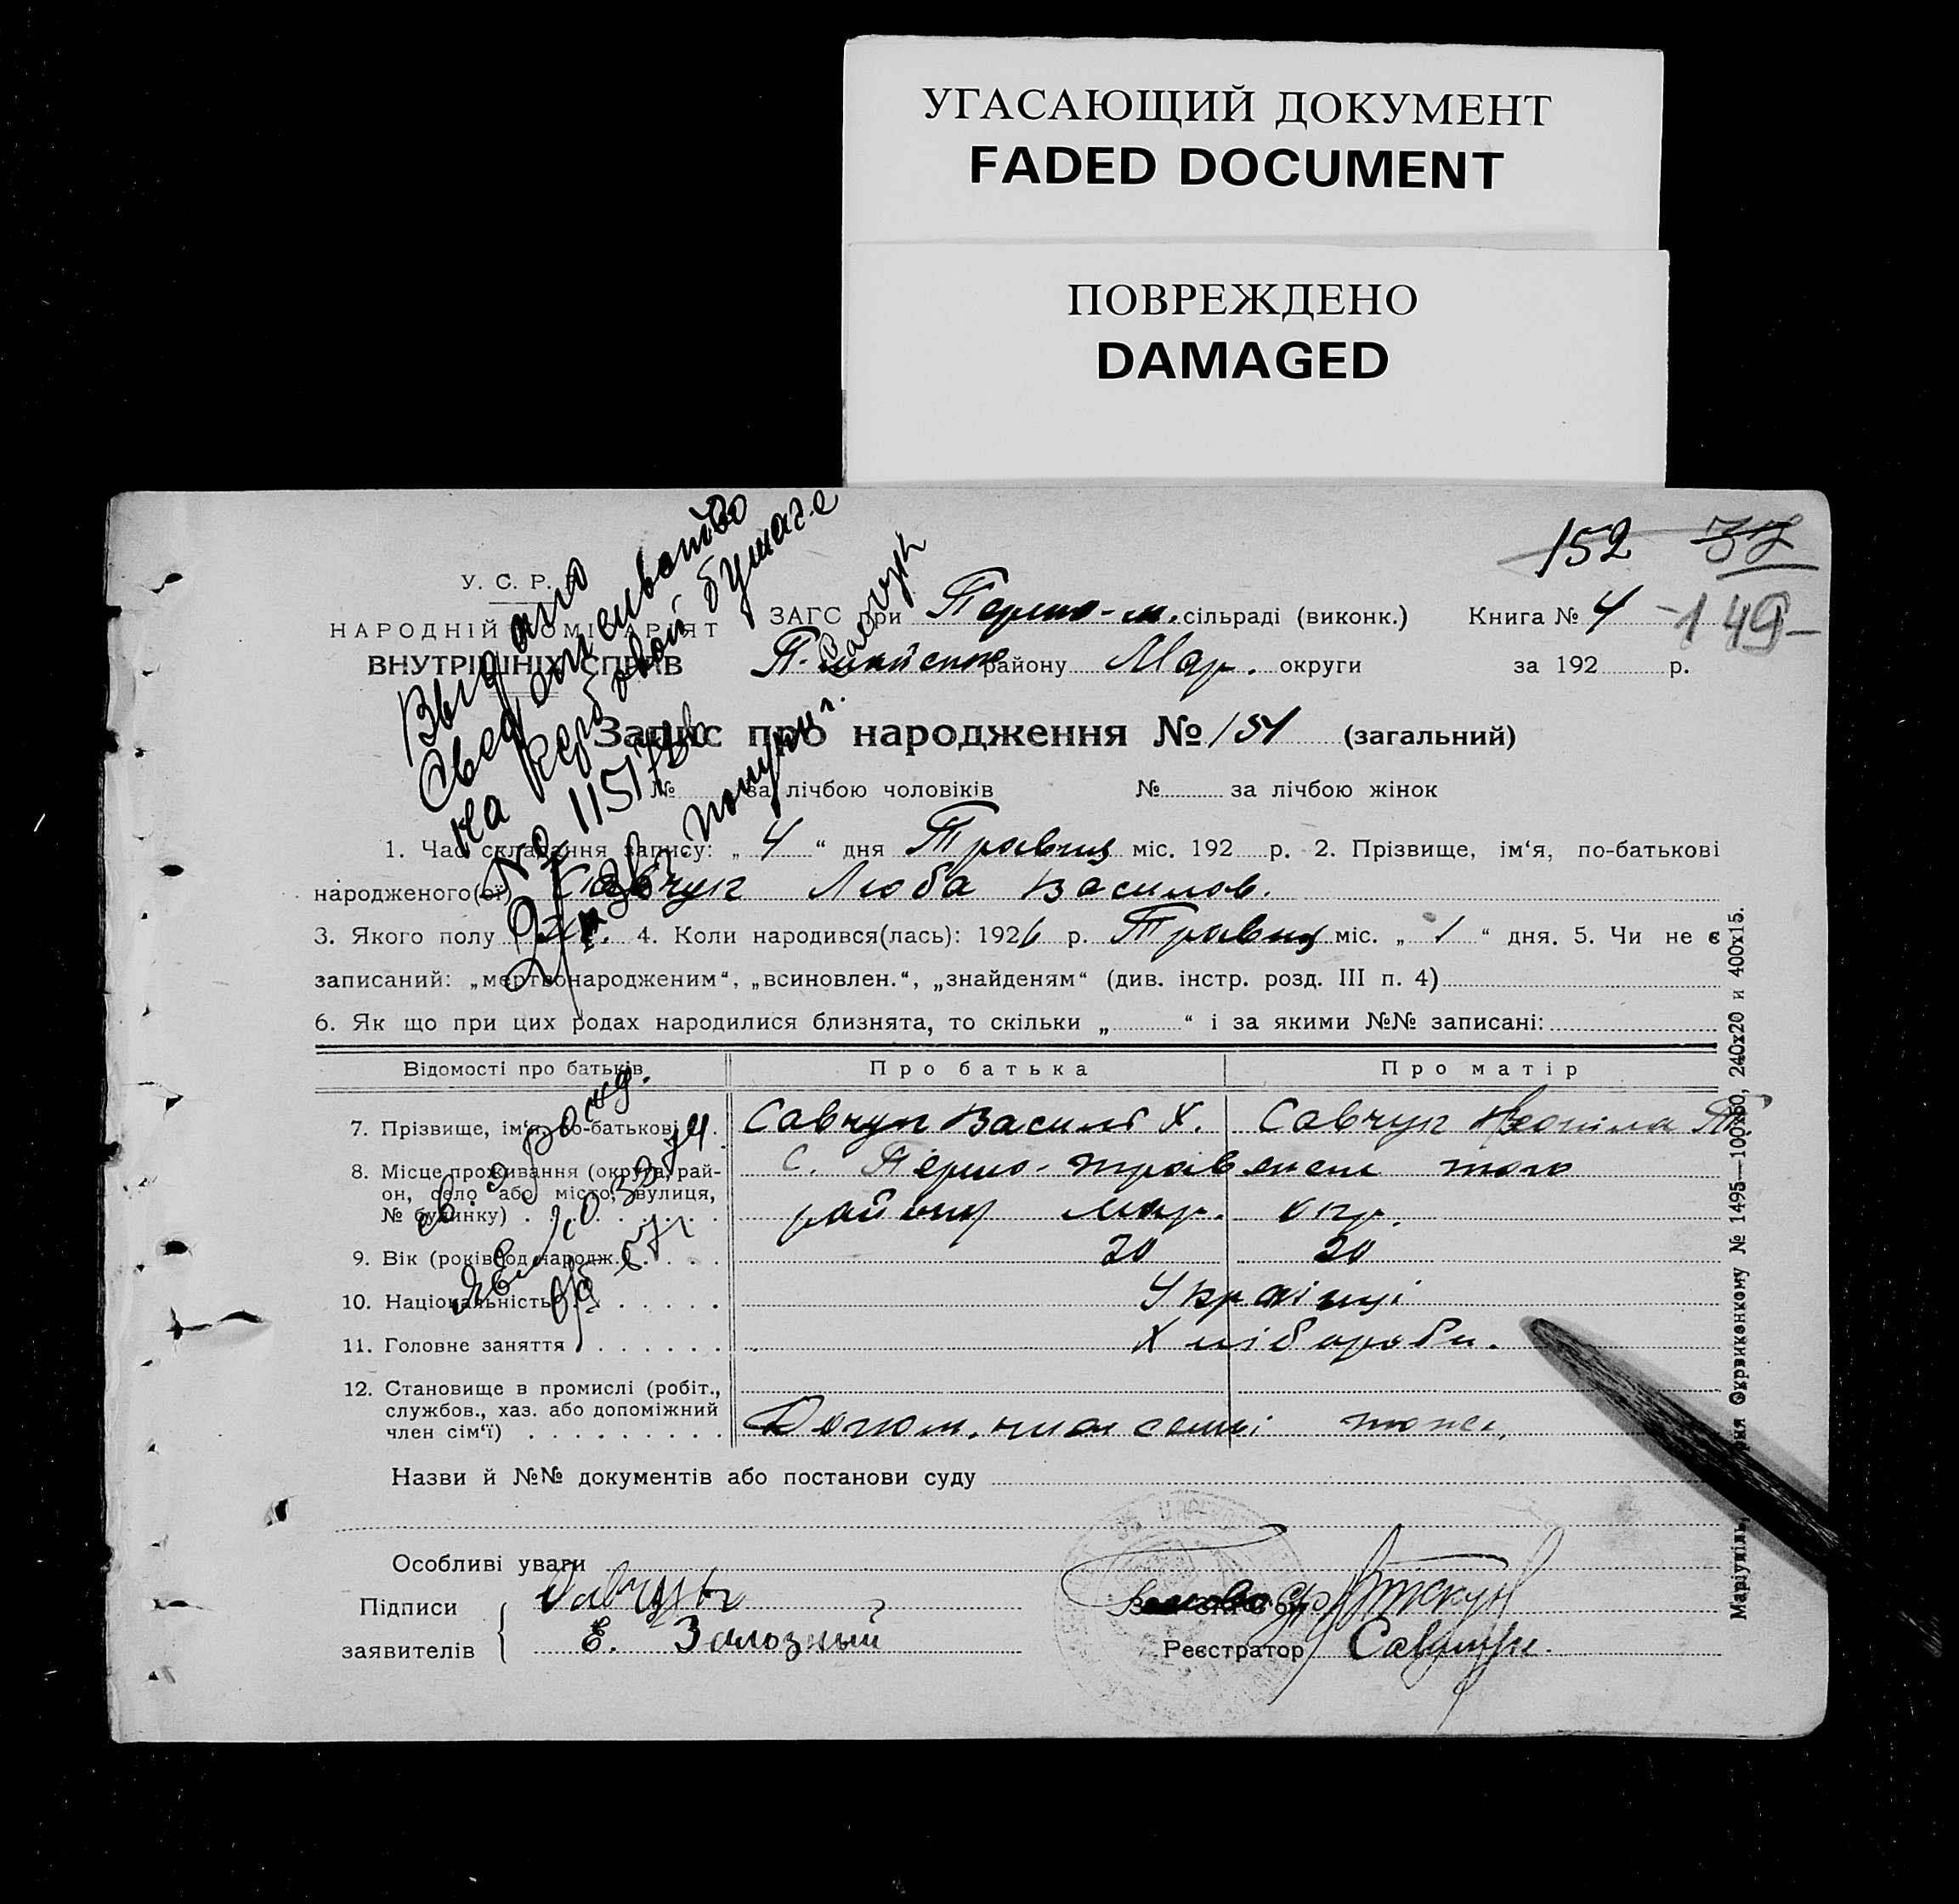 УГАСАЮЩИЙ ДОКУМЕНТ
FADED DOCUMENT
ПОВРЕЖДЕНО
DAMAGED
152 37
149
У. С. Р. Р.
НАРОДНІЙ КОМІСАРІЯТ
ВНУТРІШНІХ СПРАВ
ЗАГС при Перво-м. сільраді (виконк.) Книга № 4
П. району Мар. округи за 192 р.
Выдано
Свидетельство
на гербовой бумаге
№
Запис про народження № 151 (загальний)
№ за лічбою чоловіків № за лічбою жінок
1. Час складання запису: „ 4 “ дня Травня міс. 192 р. 2. Прізвище, ім‘я, по-батькові
народженого(ої) Савчук Люба Василов.
3. Якого полу 4. Коли народився(лась): 1926 р. Травня міс. „ 1 “ дня. 5. Чи не є
записаний: „мертвонародженим“, „всиновлен.“, „знайденям“ (див. інстр. розд. III п. 4)
6. Як що при цих родах народилися близнята, то скільки „ “ і за якими №№ записані:
Відомості про батьків Про батька Про матір
7. Прізвище, ім‘я, по-батькові Савчук Василь Х. Савчук
8. Місце проживання (округа, рай-
он, село або місто, вулиця,
№ будинку)
с. Перто-травенем того
району Мар. окр.
9. Вік (років од народж.) 20 20
10. Національність Українці
11. Головне заняття Хлібороби.
12. Становище в промислі (робіт.,
службов., хаз. або допоміжний
член сім‘ї)
Допом. член семьі тоже
Назви й №№ документів або постанови суду
Особливі уваги
Підписи
заявителів
Савчук
Е. Залозний
Реєстратор
Маріупіль, Окрвиконкому № 1495—100х50, 240х20 и 400х15.